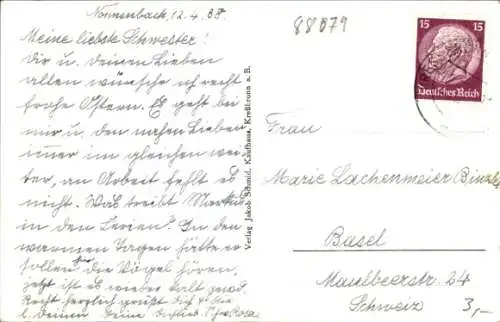 Nonnenbach, 12.4.38.
Meine liebste Schwester!
Dir u. deinen Lieben
allen wünsche ich recht
frohe Ostern. Es geht bei
mir u. den nahen Lieben
immer im gleichen wei-
ter, an Arbeit fehlt es
nicht. Was treibt
in den Ferien? In den
warmen Tagen hätte er
sollen die Vögel hören,
jetzt ist es wieder kalt
Recht herzlich grüßt dich
l. deinen deine Rosa
Verlag Jakob Schmid, Kaufhaus, Kreßbronn a. B.
88079
15 15
Deutsches Reich
Frau
Marie Lachenmeier
Basel
Maulbeerstr. 24
Schweiz
3,-